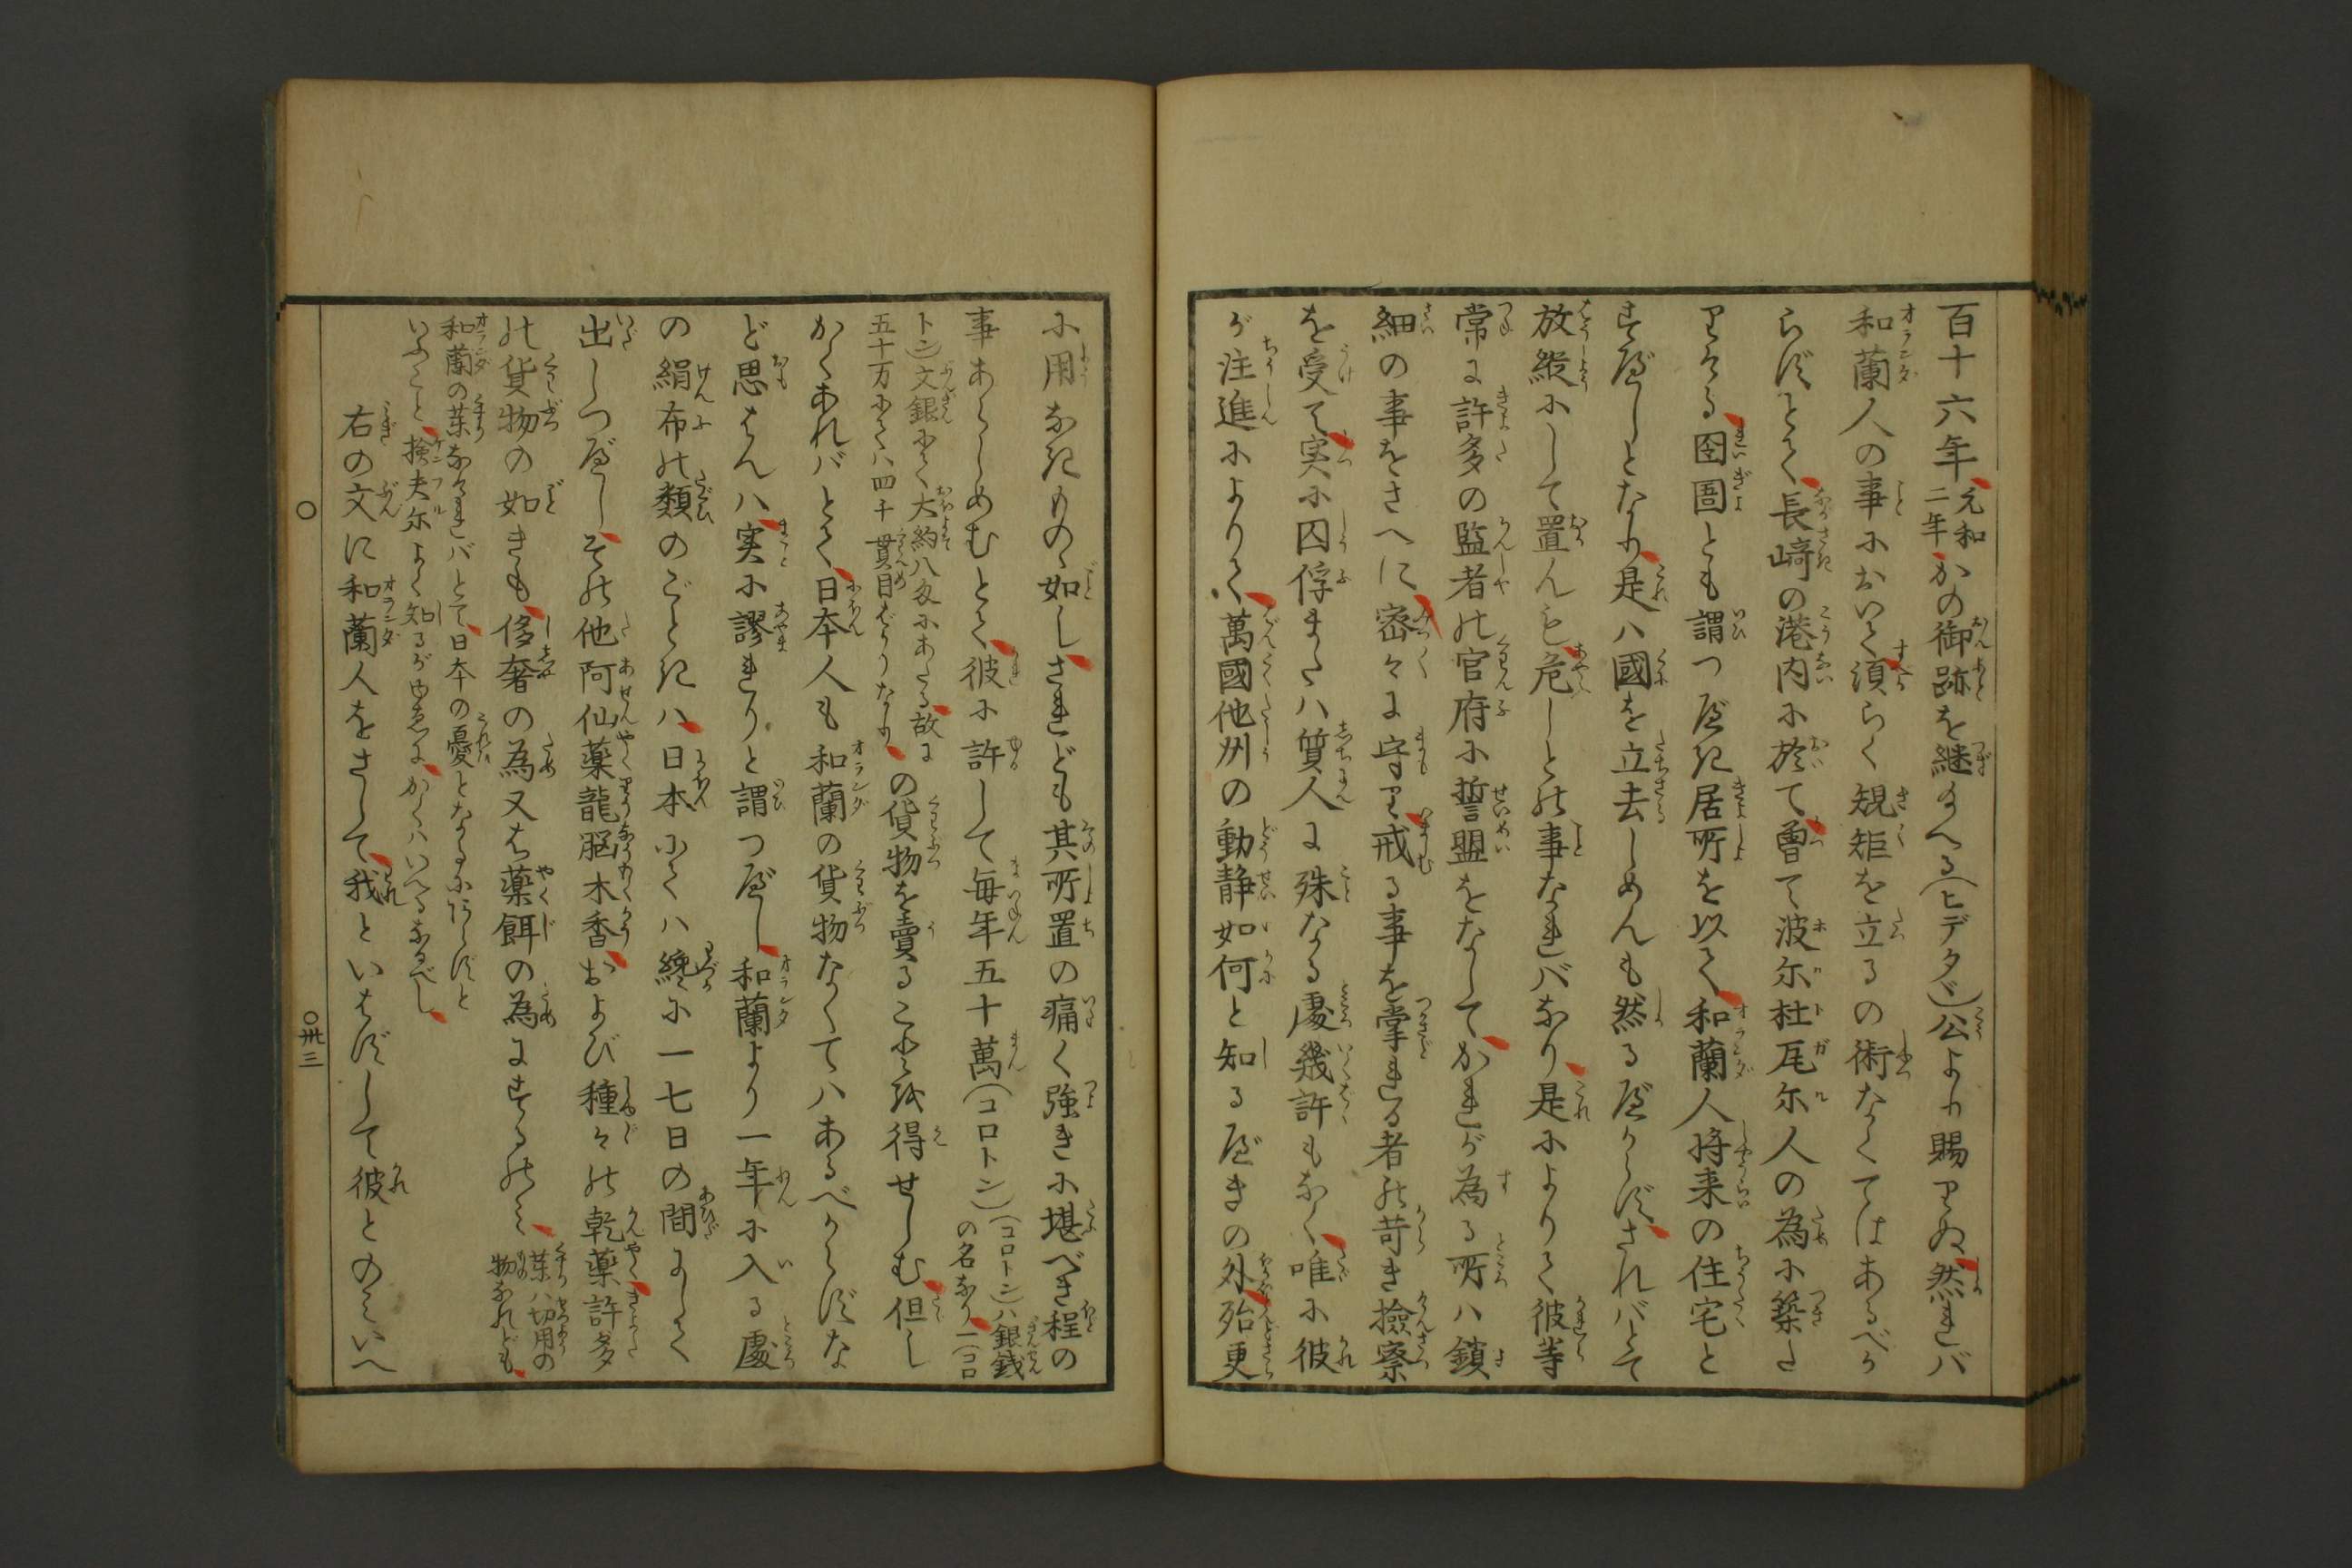 百十六年元和二年かの御跡を継給へる(ヒデタダ)公より賜りぬ然れバ
和蘭人の事においてハ須らく規矩を立るの術なくてはあるべか
らずとて長﨑の港内に於て曽て波尓杜瓦尓人の為に築た
りける囹圄とも謂つべき居所を以て和蘭人将来の住宅と
すべしとなり是ハ國を立去しめんも然るべからずさればとて
放縦にして置んも危しとの事なればなり是によりて彼等
常に許多の監者の官府に誓盟をなしてかれが為る所ハ鎖
細の事をさへに密々に守り戒る事を掌れる者の苛き撿察
を受て実に囚俘またハ質人に殊なる處幾許もなく唯に彼
が注進によりて萬國他州の動静如何と知るべきの外殆更
に用なきものゝ如しされども其所置の痛く強きに堪べき程の
事あらしめむとて彼に許して毎年五十萬(コロトン)(コロトン)ハ銀銭の名なり一(コロ
トン)文銀にて大約八匁にあたる故に五十万にてハ四千貫目ばかりなりの貨物を賣ることを得せしむ但し
かくあれバとて日本人も和蘭の貨物なくてハあるべからずな
ど思はんハ実に謬れりと謂つべし和蘭より一年に入る處
の絹布の類のごときハ日本にてハ纔に一七日の間にして
出しつべしその他阿仙薬龍脳木香および種々の乾薬許多
の貨物の如きも侈奢の為又は薬餌の為にするのミ薬ハ切用の物なれども
和蘭の薬なければとて日本の憂となるにハあらずと
いふこと撿夫尓よく知るが故にかくハいへるなるべし
右の文に和蘭人をさして我といはずして彼とのミいへ
〇 〇卅三